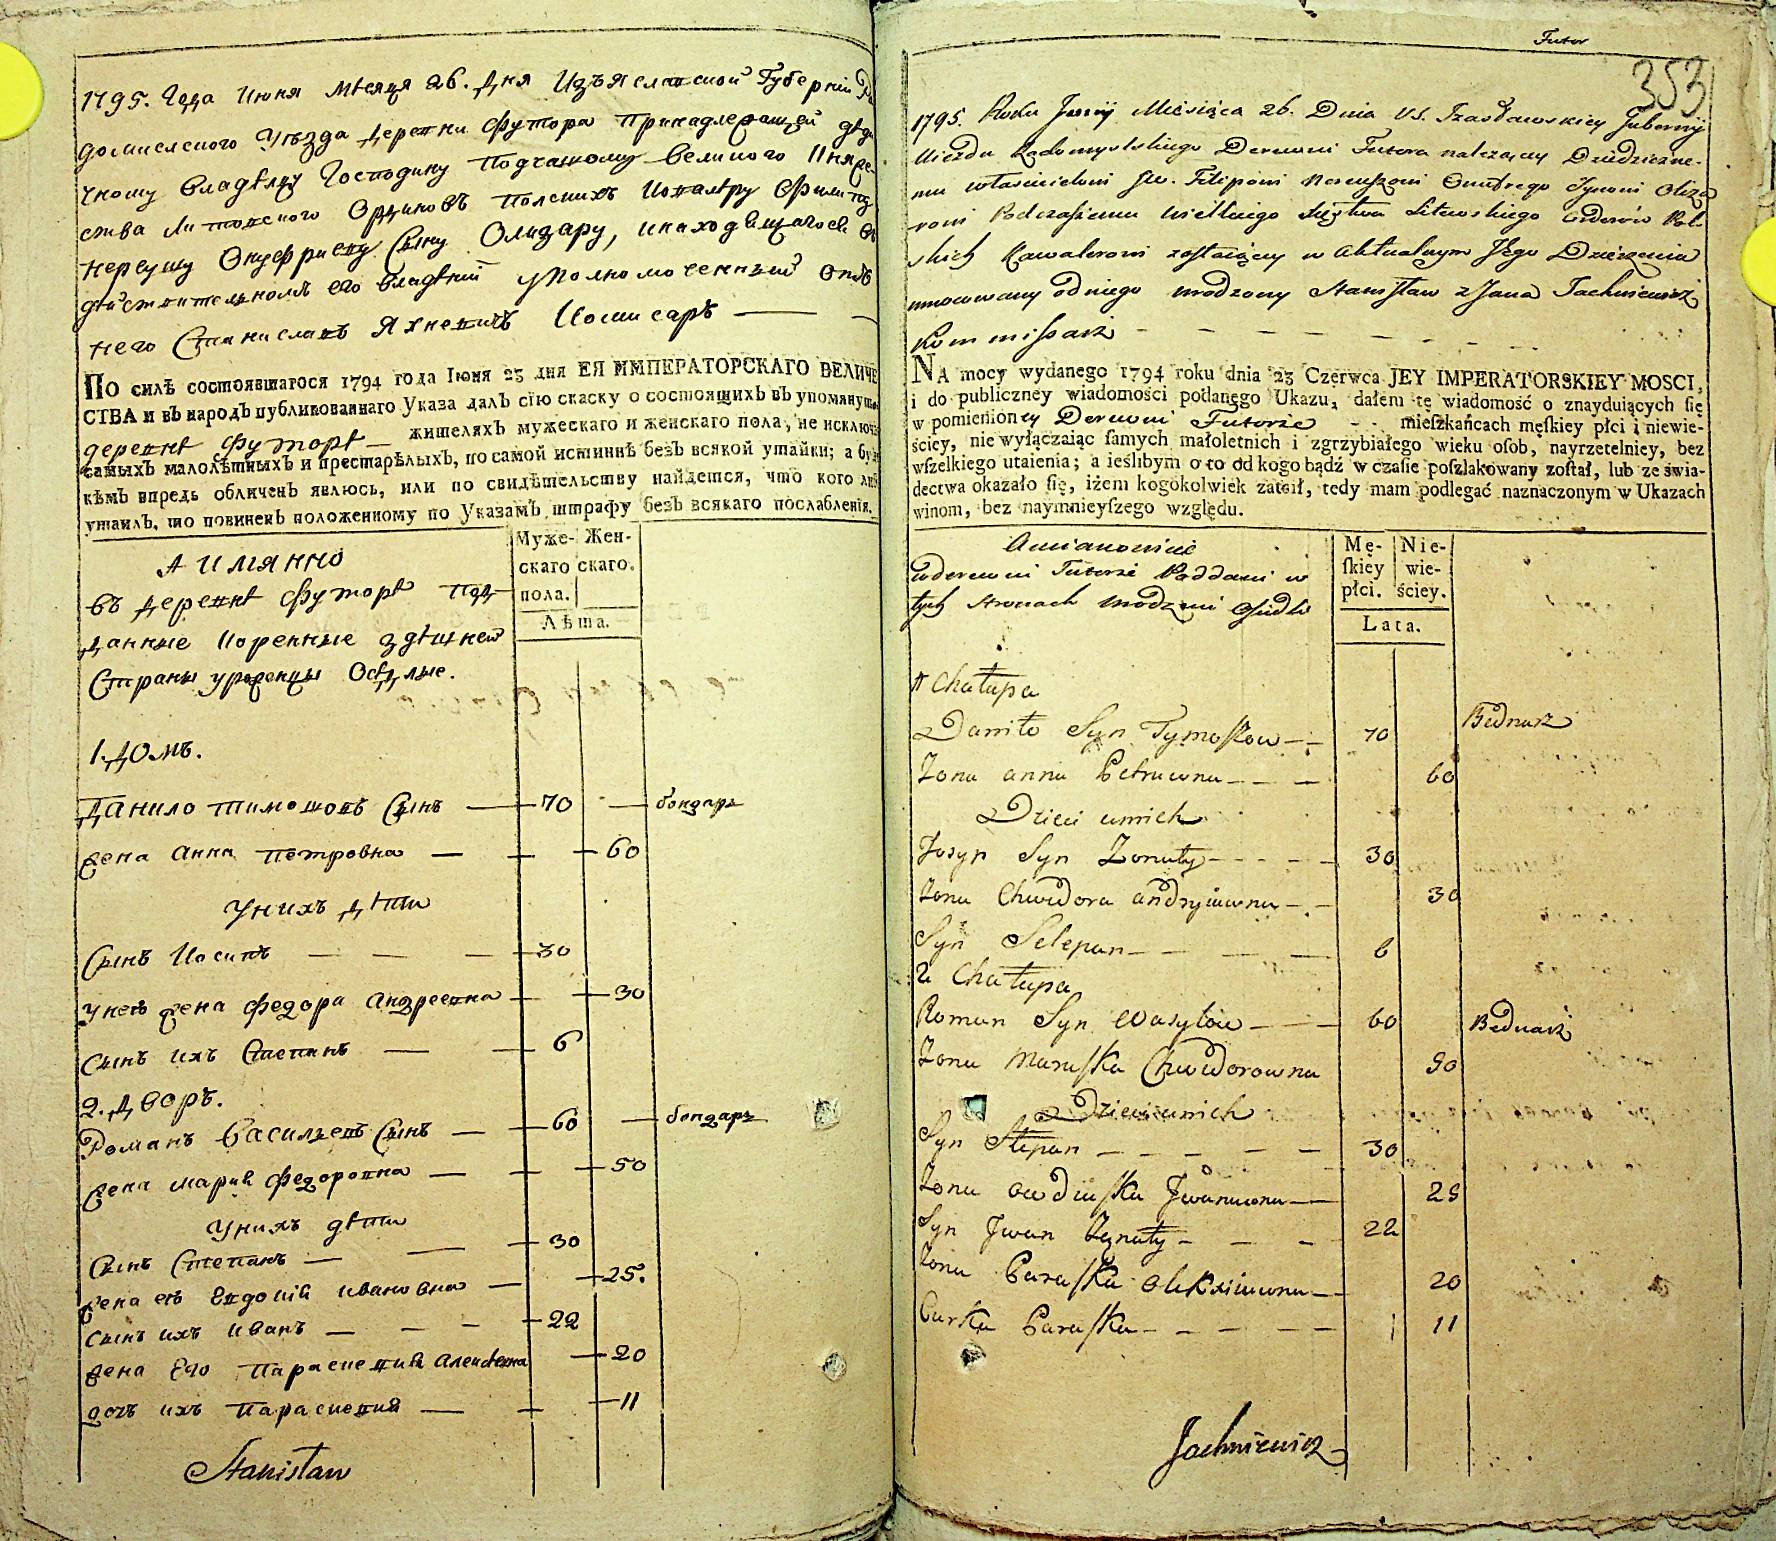 1795. Года Июня Месяця 26. Дня Изъяславской Губерніи Ра
домисленого Уѣзда деревни Футора принадлежащей дѣди
чному владѣлцу Господину Подчашому великого Княже
ства Литовского Ординовъ полскихъ Кавалѣру Филипу
Нереушу Онуфриеву Сыну Олизару, инаходящагося въ
дѣйствителномъ его владѣніи уполномоченный отъ
него Станиславъ Яхневичъ Комисаръ
По силѣ состоявшагося 1794 года Іюня 23 дня ЕЯ ИМПЕРАТОРСКАГО ВЕЛИЧЕ
СТВА и въ народъ публикованнаго Указа далъ сію скаску о состоящихъ въ упомянут
деревнѣ Футорѣ — жителяхъ мужескаго и женскаго пола, не исключа
самыхъ малолѣтныхъ и престарѣлыхъ, по самой истиннѣ безъ всякой утайки; а бу
кѣмъ впредь обличенъ явлюсь, или по свидѣтельству найдется, что кого ли
утаилъ, то повиненъ положенному по Указамъ штрафу безъ всякаго послабленія.
Муже- Жен-
скаго скаго.
пола.
Лѣта.
А имянно
въ деревнѣ Футорѣ под
данные коренные здѣшней
Страны уроженцы Осѣдлые.
1. Домъ.
Данило Тимошовъ Сынъ — 70 — бондарь
жена Анна Петровна — 60
Унихъ дѣти
Сынъ Иосипъ — 30
унево жена Федора Андреевна — 30
сынъ ихъ Степанъ — 6
2. Дворъ.
Романъ Васильевъ Сынъ — 60 — бондарь
жена Мария Федоровна — 50
Унихъ дѣти
Сынъ Степанъ — 30
жена его Евдокия Ивановна — 25.
сынъ ихъ Иванъ — 22
жена Его Парасковия Алексѣевна — 20
дочь ихъ Парасковия — 11
Stanisław
Futor
353
1795. Roku Junij Miesiąca 26. Dnia V.S. Izasławskiey Gubernij
Uiezdu Radomyslskiego Derewni Futora należącey Dziedziczne-
mu właścicielowi Jw. Filipowi Nereuszowi Onufrego Synowi Oliza
rowi Podczaszemu Wielkiego Xięstwa Litewskiego Orderów Pol-
skich Kawalerowi zostaiącey w Aktualnym Jego Dzierżeniu
umocowany odniego urodzony Stanisław z Jana Jachniewicz
Kommissarz
NA mocy wydanego 1794 roku dnia 23 Czerwca JEY IMPERATORSKIEY MOSCI,
i do publiczney wiadomości podanego Ukazu, dałem tę wiadomość o znayduiących się
w pomienioney Derewni Futorze - - mieſzkańcach męſkiey płci i niewie-
ściey, nie wyłączaiąc ſamych małoletnich i zgrzybiałego wieku oſob, nayrzetelniey, bez
wſzelkiego utaienia; a ieślibym o to od kogo bądź w czaſie poſzlakowany zoſtał, lub ze świa-
dectwa okazało ſię, iżem kogokolwiek zataił, tedy mam podlegać naznaczonym w Ukazach
winom, bez naymnieyſzego względu.
Mę- Nie-
ſkiey wie-
płci. ściey.
Lata.
Amianowicie
wderewni Futorze Poddani w
tych Stronach Urodzeni Osiedli
1 Chałupa
Daniło Syn Tymoszow — 70 Bednarz
Zona Anna Petruwna — 60
Dzieci unich
Josyp Syn Zonaty — 30
Zona Chwedora Andryiuwna — 30
Syn Stepan — 6
2 Chałupa
Roman Syn Wasylow — 60 Bednarz
Zona Maruszka Chwedorowna 50
Dzieci unich
Syn Stepan — 30
Zona Owdiuszka Jwanuwna — 25
Syn Jwan Żonaty — 22
Zona Paraszka Olexiiuwna — 20
Curka Paraszka — 11
Jachniewicz